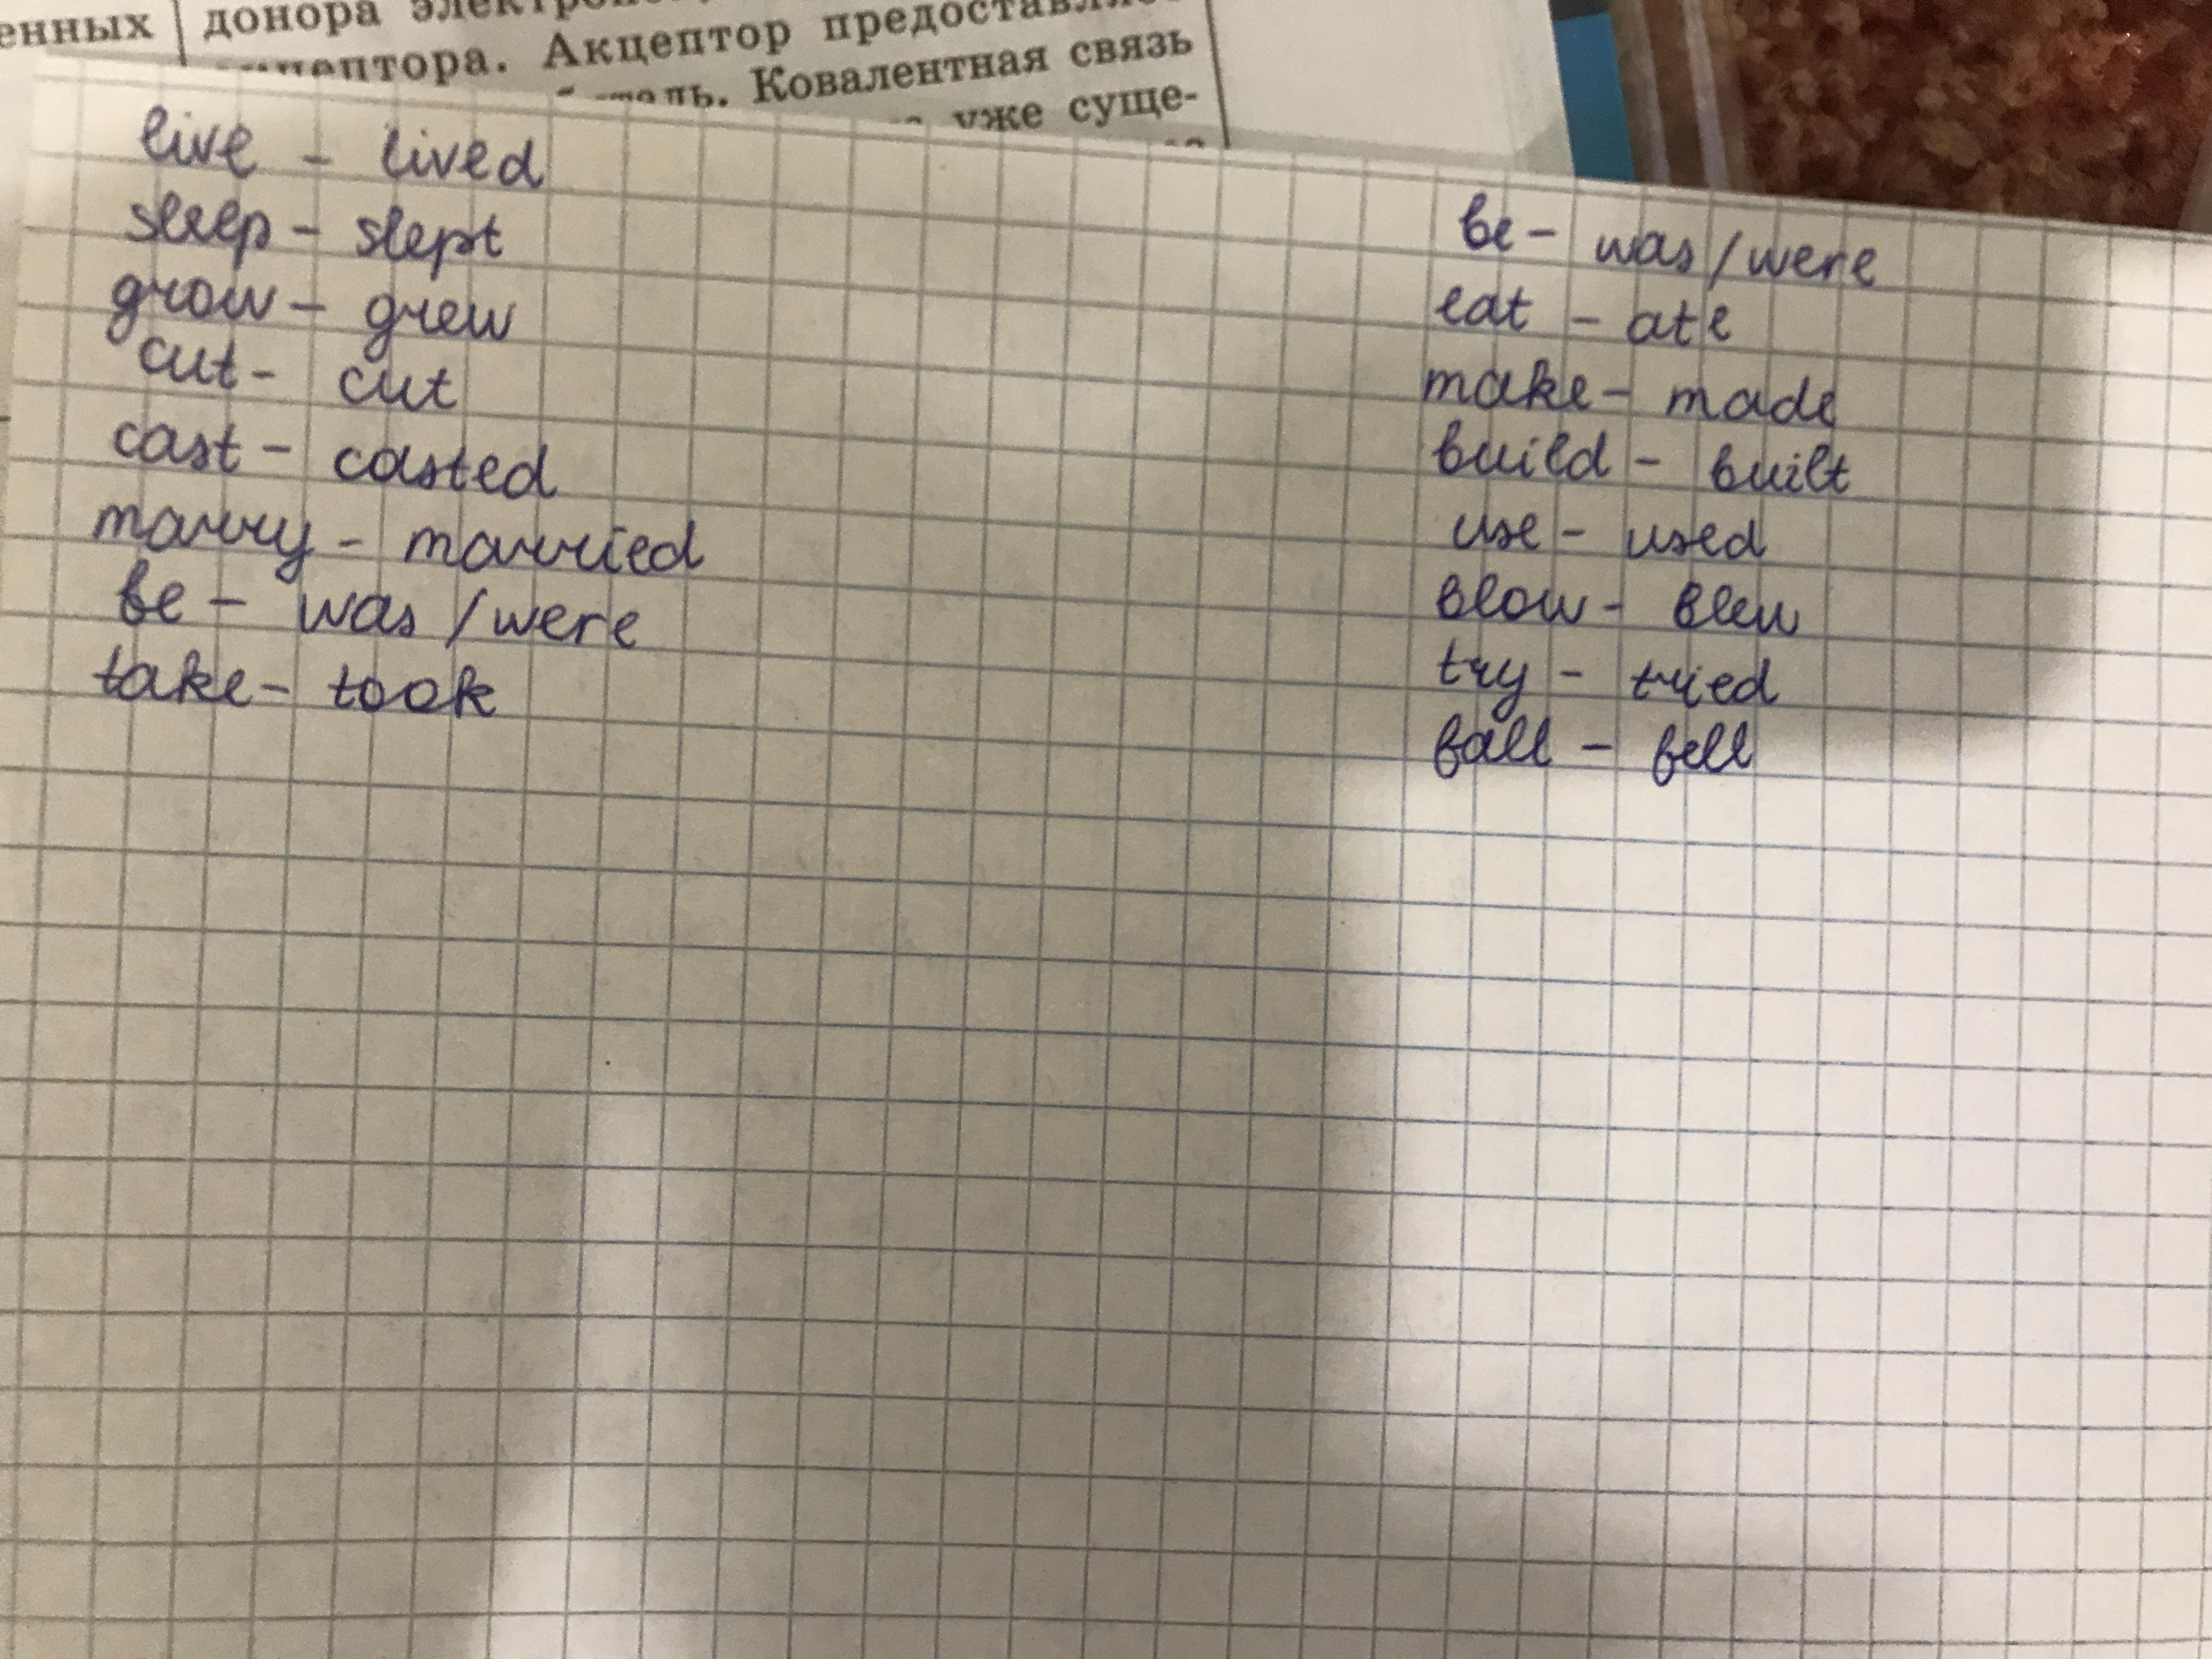 енных донора
Акцептор предоставляет
Ковалентная связь
уже суще-
live - lived
sleep - slept
grow - grew
cut - cut
cast - casted
marry - married
be - was / were
take - took
be - was / were
eat - ate
make - made
build - built
use - used
blow - blew
try - tried
fall - fell